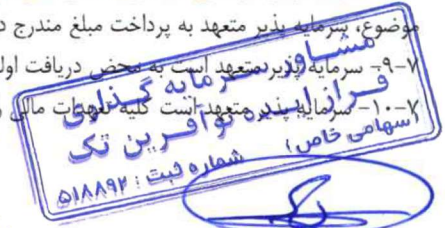 موضوع، سرمایه پذیر متعهد به پرداخت مبلغ مندرج د
۷-۹- سرمایه پذیر متعهد است به محض دریافت اول
۷-۱۰- سرمایه پذیر متعهد است کلیه تعهدات مالی و
مشاور سرمایه گذاری
فراز ایده نوآفرین تک
(سهامی خاص)
شماره ثبت : ۵۱۸۸۹۲